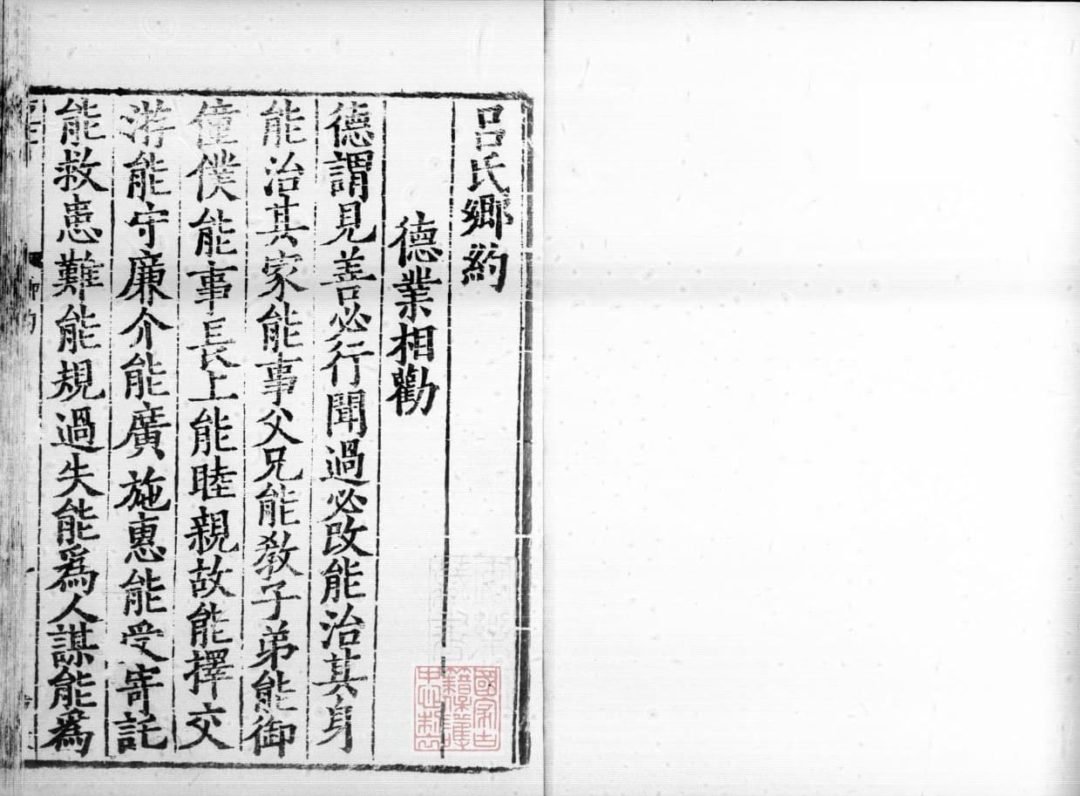 吕氏郷約
德業相勸
德謂見善必行聞過必改能治其身
能治其家能事父兄能教子弟能御
僮僕能事長上能睦親故能擇交
游能守廉介能廣施惠能受寄託
能救患難能規過失能爲人謀能爲